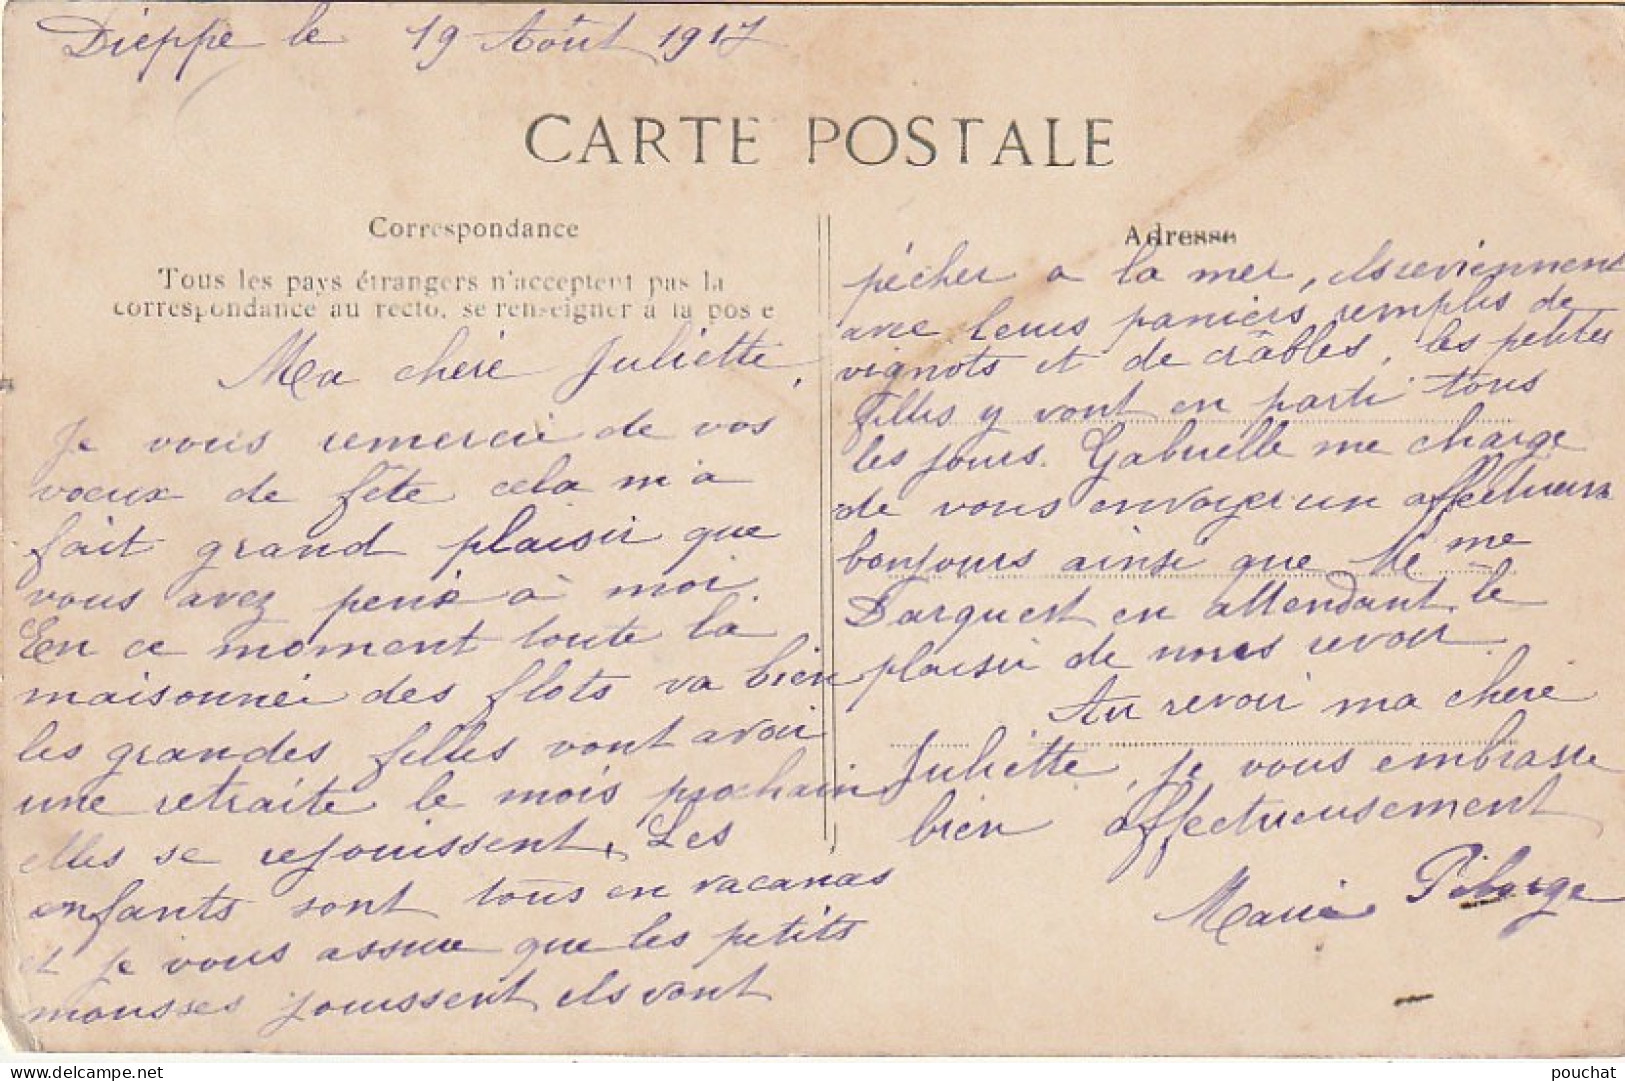 Dieppe le 19 Août 1917
CARTE POSTALE
Correspondance
Tous les pays étrangers n'acceptent pas la
correspondance au recto, se renseigner à la poste
Ma chère Juliette,
Je vous remercie de vos
voeux de fête cela m'a
fait grand plaisir que
vous avez pensé à moi.
En ce moment toute la
maisonnée des flots va bien
les grandes filles vont avoir
une retraite le mois prochain
elles se rejouissent, Les
enfants sont tous en vacanas
et je vous assure que les petits
mousses jouissent ils vont
Adresse
pêcher a la mer, ils reviennent
avec leurs paniers remplis de
vignots et de crâbles, les petites
filles y vont en parti tous
les jours. Gabrielle me charge
de vous envoyer un affectueux
bonjours ainsi que Mme
Darquest en attendant le
plaisir de nous revoir.
Au revoir ma chère
Juliette, je vous embrasse
bien affectueusement
Marie
pouchat
delcampe.net